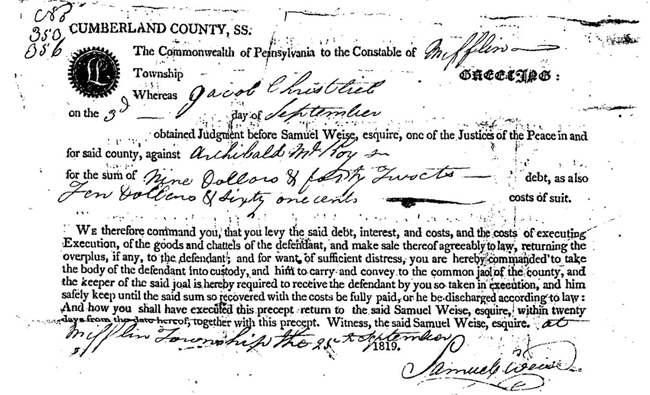 No
350
356
CUMBERLAND COUNTY, SS.
The Commonwealth of Pennsylvania to the Constable of Mifflin
Township GREETING:
Whereas Jacob Christlieb
on the 3d day of September
obtained Judgment before Samuel Weise, esquire, one of the Justices of the Peace in and
for said county, against Archibald McCoy
for the sum of Nine Dollars & forty Two cts debt, as also
Ten Dollars & Sixty one cents costs of suit.
WE therefore command you, that you levy the said debt, interest, and costs, and the costs of executing
Execution, of the goods and chattels of the defendant, and make sale thereof agreeably to law, returning the
overplus, if any, to the defendant; and for want of sufficient distress, you are hereby commanded to take
the body of the defendant into custody, and him to carry and convey to the common jaol of the county, and
the keeper of the said joal is hereby required to receive the defendant by you so taken in execution, and him
safely keep until the said sum so recovered with the costs be fully paid, or he be discharged according to law:
And how you shall have executed this precept return to the said Samuel Weise, esquire, within twenty
days from the date hereof, together with this precept. Witness, the said Samuel Weise, esquire. at
Mifflin Township the September 1819.
Samuel Weise